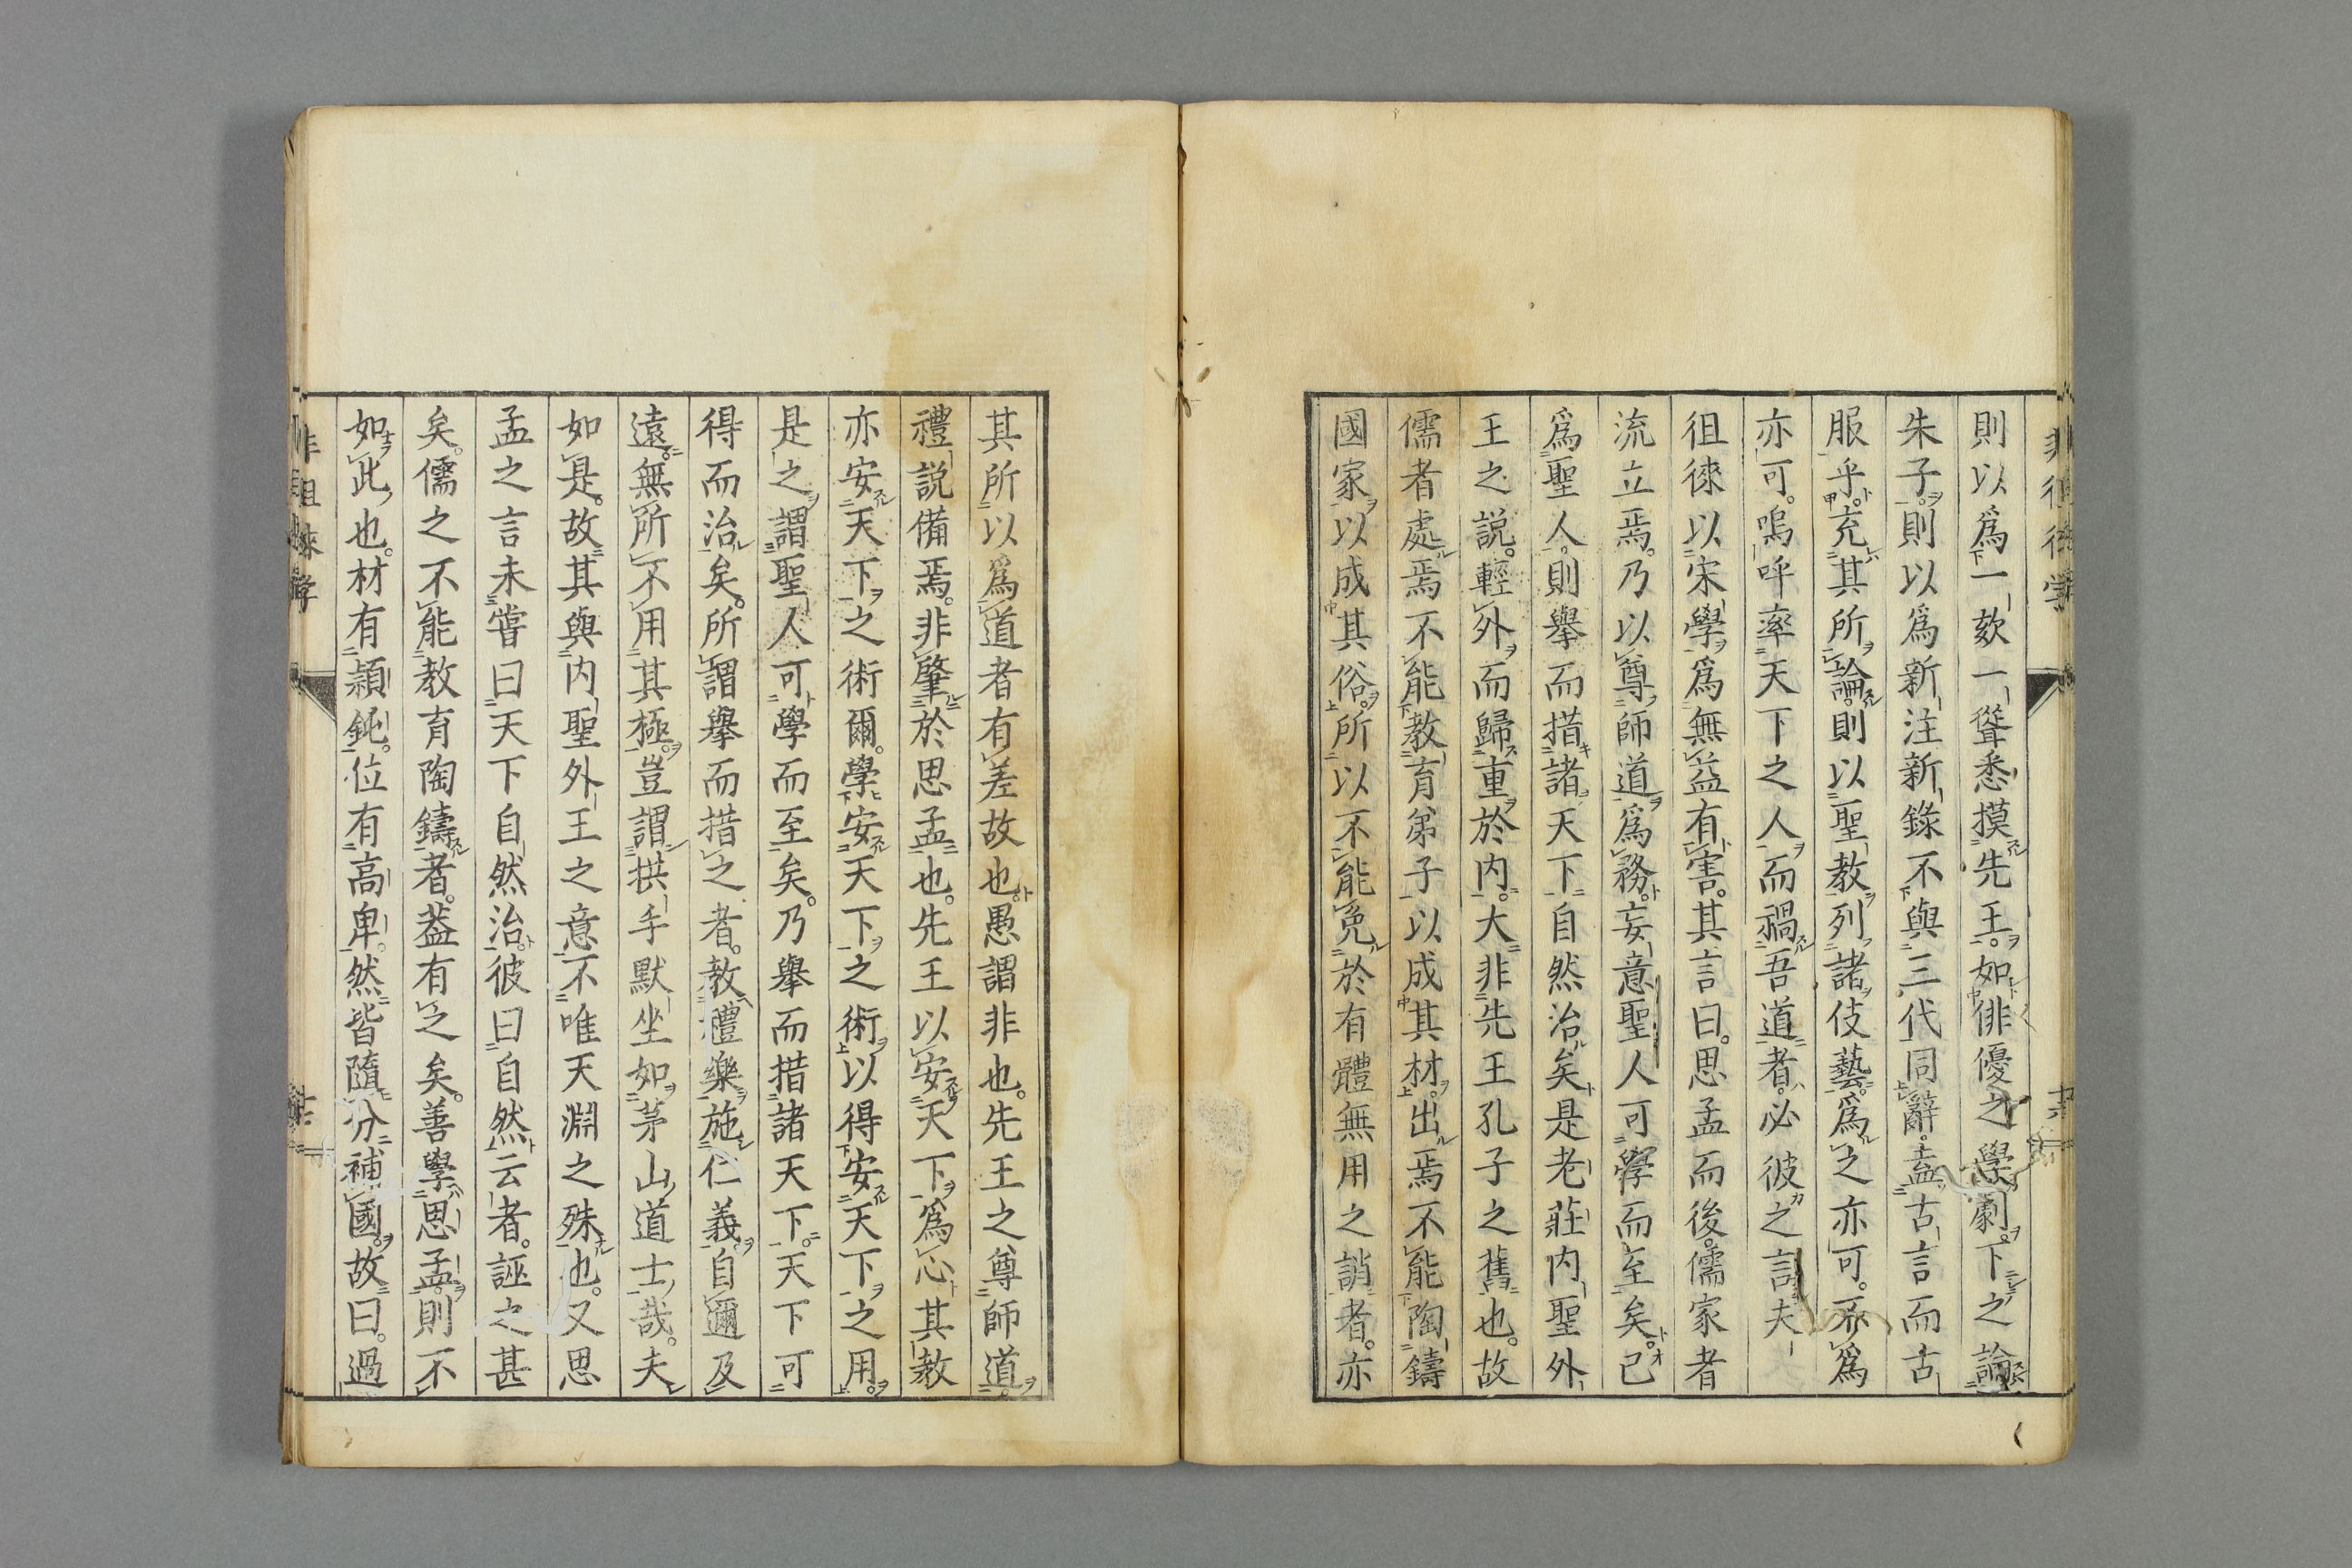 則以爲一欬一聳悉摸先王如俳優之學劇下之論
朱子則以爲新注新錄不與三代同辭盍古言而古
服乎充其所論則以聖教列諸伎藝爲之亦可不爲
亦可嗚呼率天下之人而禍吾道者必彼之言夫
徂徠以宋學爲無益有害其言曰思孟而後儒家者
流立焉乃以尊師道爲務妄意聖人可學而至矣已
爲聖人則舉而措諸天下自然治矣是老莊内聖外
王之説輕外而歸重於内大非先王孔子之舊也故
儒者處焉不能教育弟子以成其材出焉不能陶鑄
國家以成其俗所以不能免於有體無用之誚者亦
其所以爲道者有差故也愚謂非也先王之尊師道
禮説備焉非肇於思孟也先王以安天下爲心其教
亦安天下之術爾學安天下之術以得安天下之用
是之謂聖人可學而至矣乃舉而措諸天下天下可
得而治矣所謂舉而措之者教禮樂施仁義自邇及
遠無所不用其極豈謂拱手默坐如茅山道士哉夫
如是故其與内聖外王之意不唯天淵之殊也又思
孟之言未嘗曰天下自然治彼曰自然云者誣之甚
矣儒之不能教育陶鑄者葢有之矣善學思孟則不
如此也材有穎鈍位有高卑然皆隨分補國故曰過